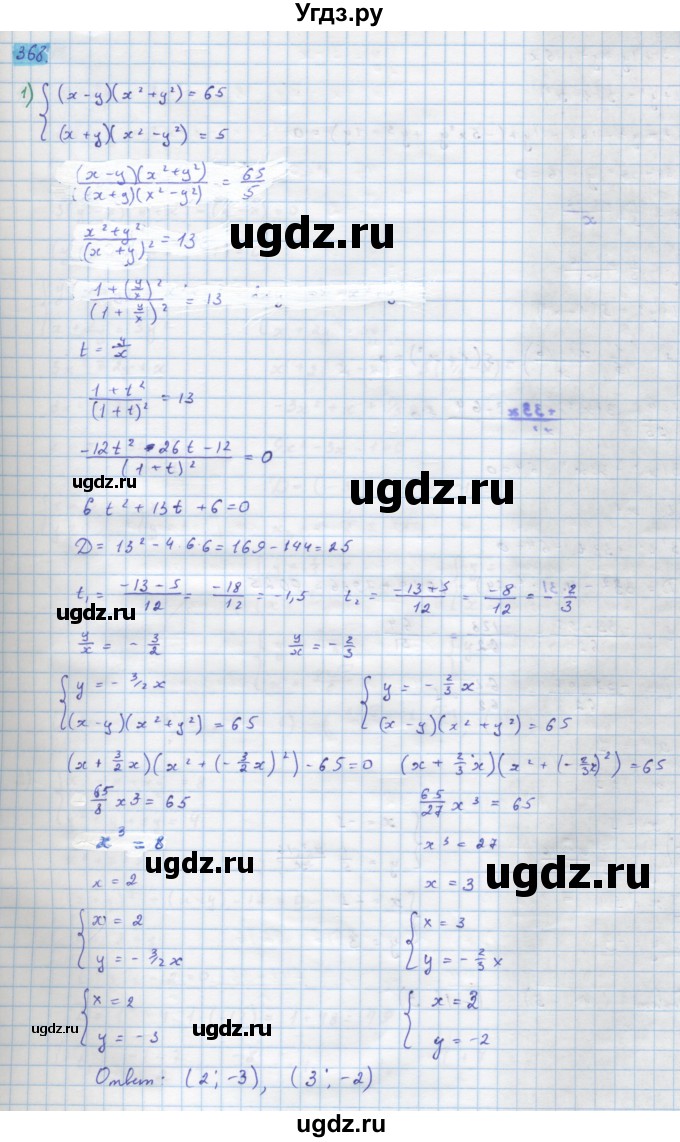 Угдз.ру
366
1) { (x - y)(x² + y²) = 65
(x + y)(x² - y²) = 5
(x - y)(x² + y²) / (x + y)(x² - y²) = 65/5
x² + y² / (x + y)² = 13
ugdz.ru
1 + (y/x)² / (1 + y/x)² = 13
t = y/x
1 + t² / (1 + t)² = 13
-12t² - 26t - 12 / (1 + t)² = 0
ugdz.ru ugdz.ru
6 t² + 13t + 6 = 0
D = 13² - 4 6 6 = 169 - 144 = 25
t₁ = -13 - 5 / 12 = -18/12 = -1,5 t₂ = -13 + 5 / 12 = -8/12 = -2/3
ugdz.ru
y/x = - 3/2 y/x = - 2/3
{ y = - 3/2 x { y = - 2/3 x
(x - y)(x² + y²) = 65 (x - y)(x² + y²) = 65
(x + 3/2 x)(x² + (- 3/2 x)²) - 65 = 0 (x + 2/3 x)(x² + (- 2/3 x)²) = 65
65/8 x³ = 65 65/27 x³ = 65
x³ = 8 x³ = 27
ugdz.ru ugdz.ru
x = 2 x = 3
{ x = 2 { x = 3
y = - 3/2 x y = - 2/3 x
{ x = 2 { x = 3
y = - 3 y = -2
ugdz.ru ugdz.ru ugdz.ru
Ответ: (2; -3), (3; -2)
ugdz.ru